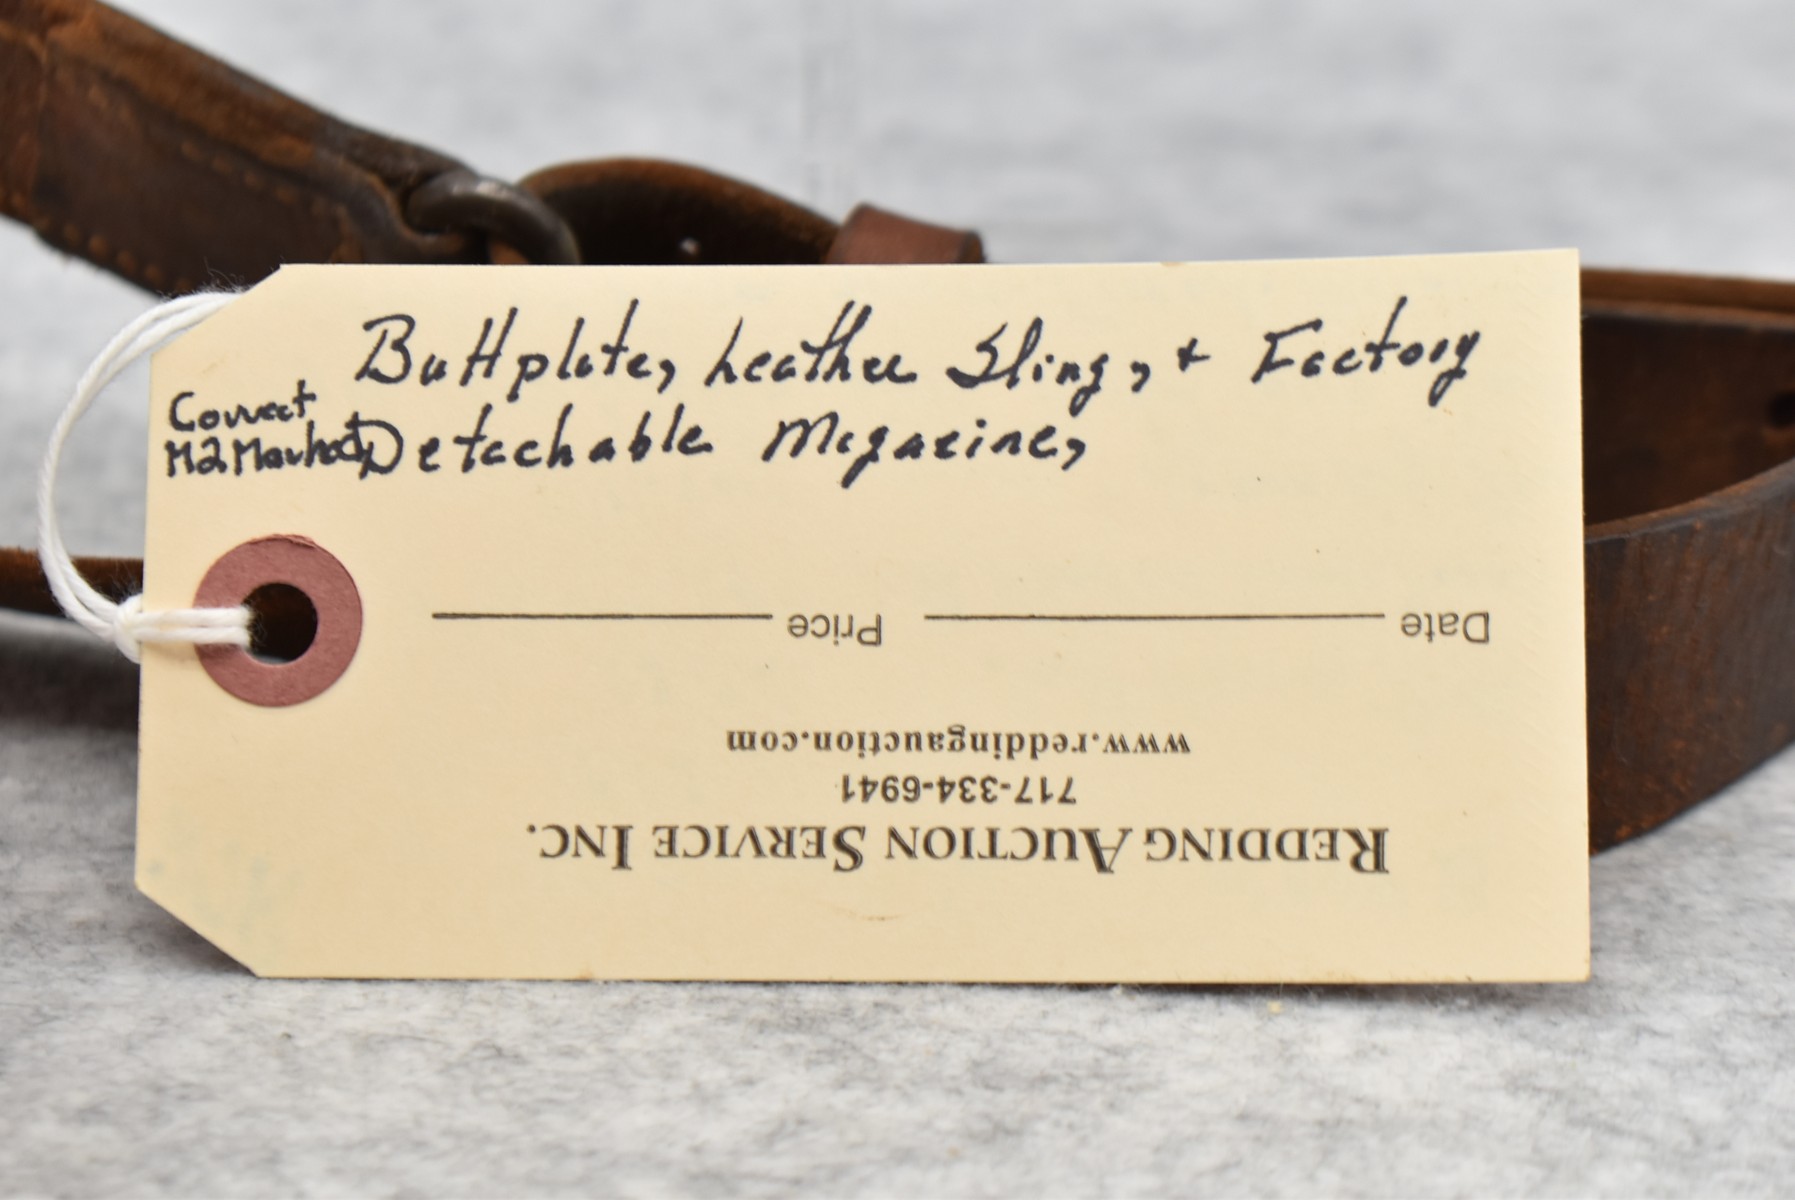 Buttplate, Leather Sling, + Factory
Correct
M2 Marked, Detachable Magazine,
Date Price
www.reddingauction.com
717-334-6941
REDDING AUCTION SERVICE INC.